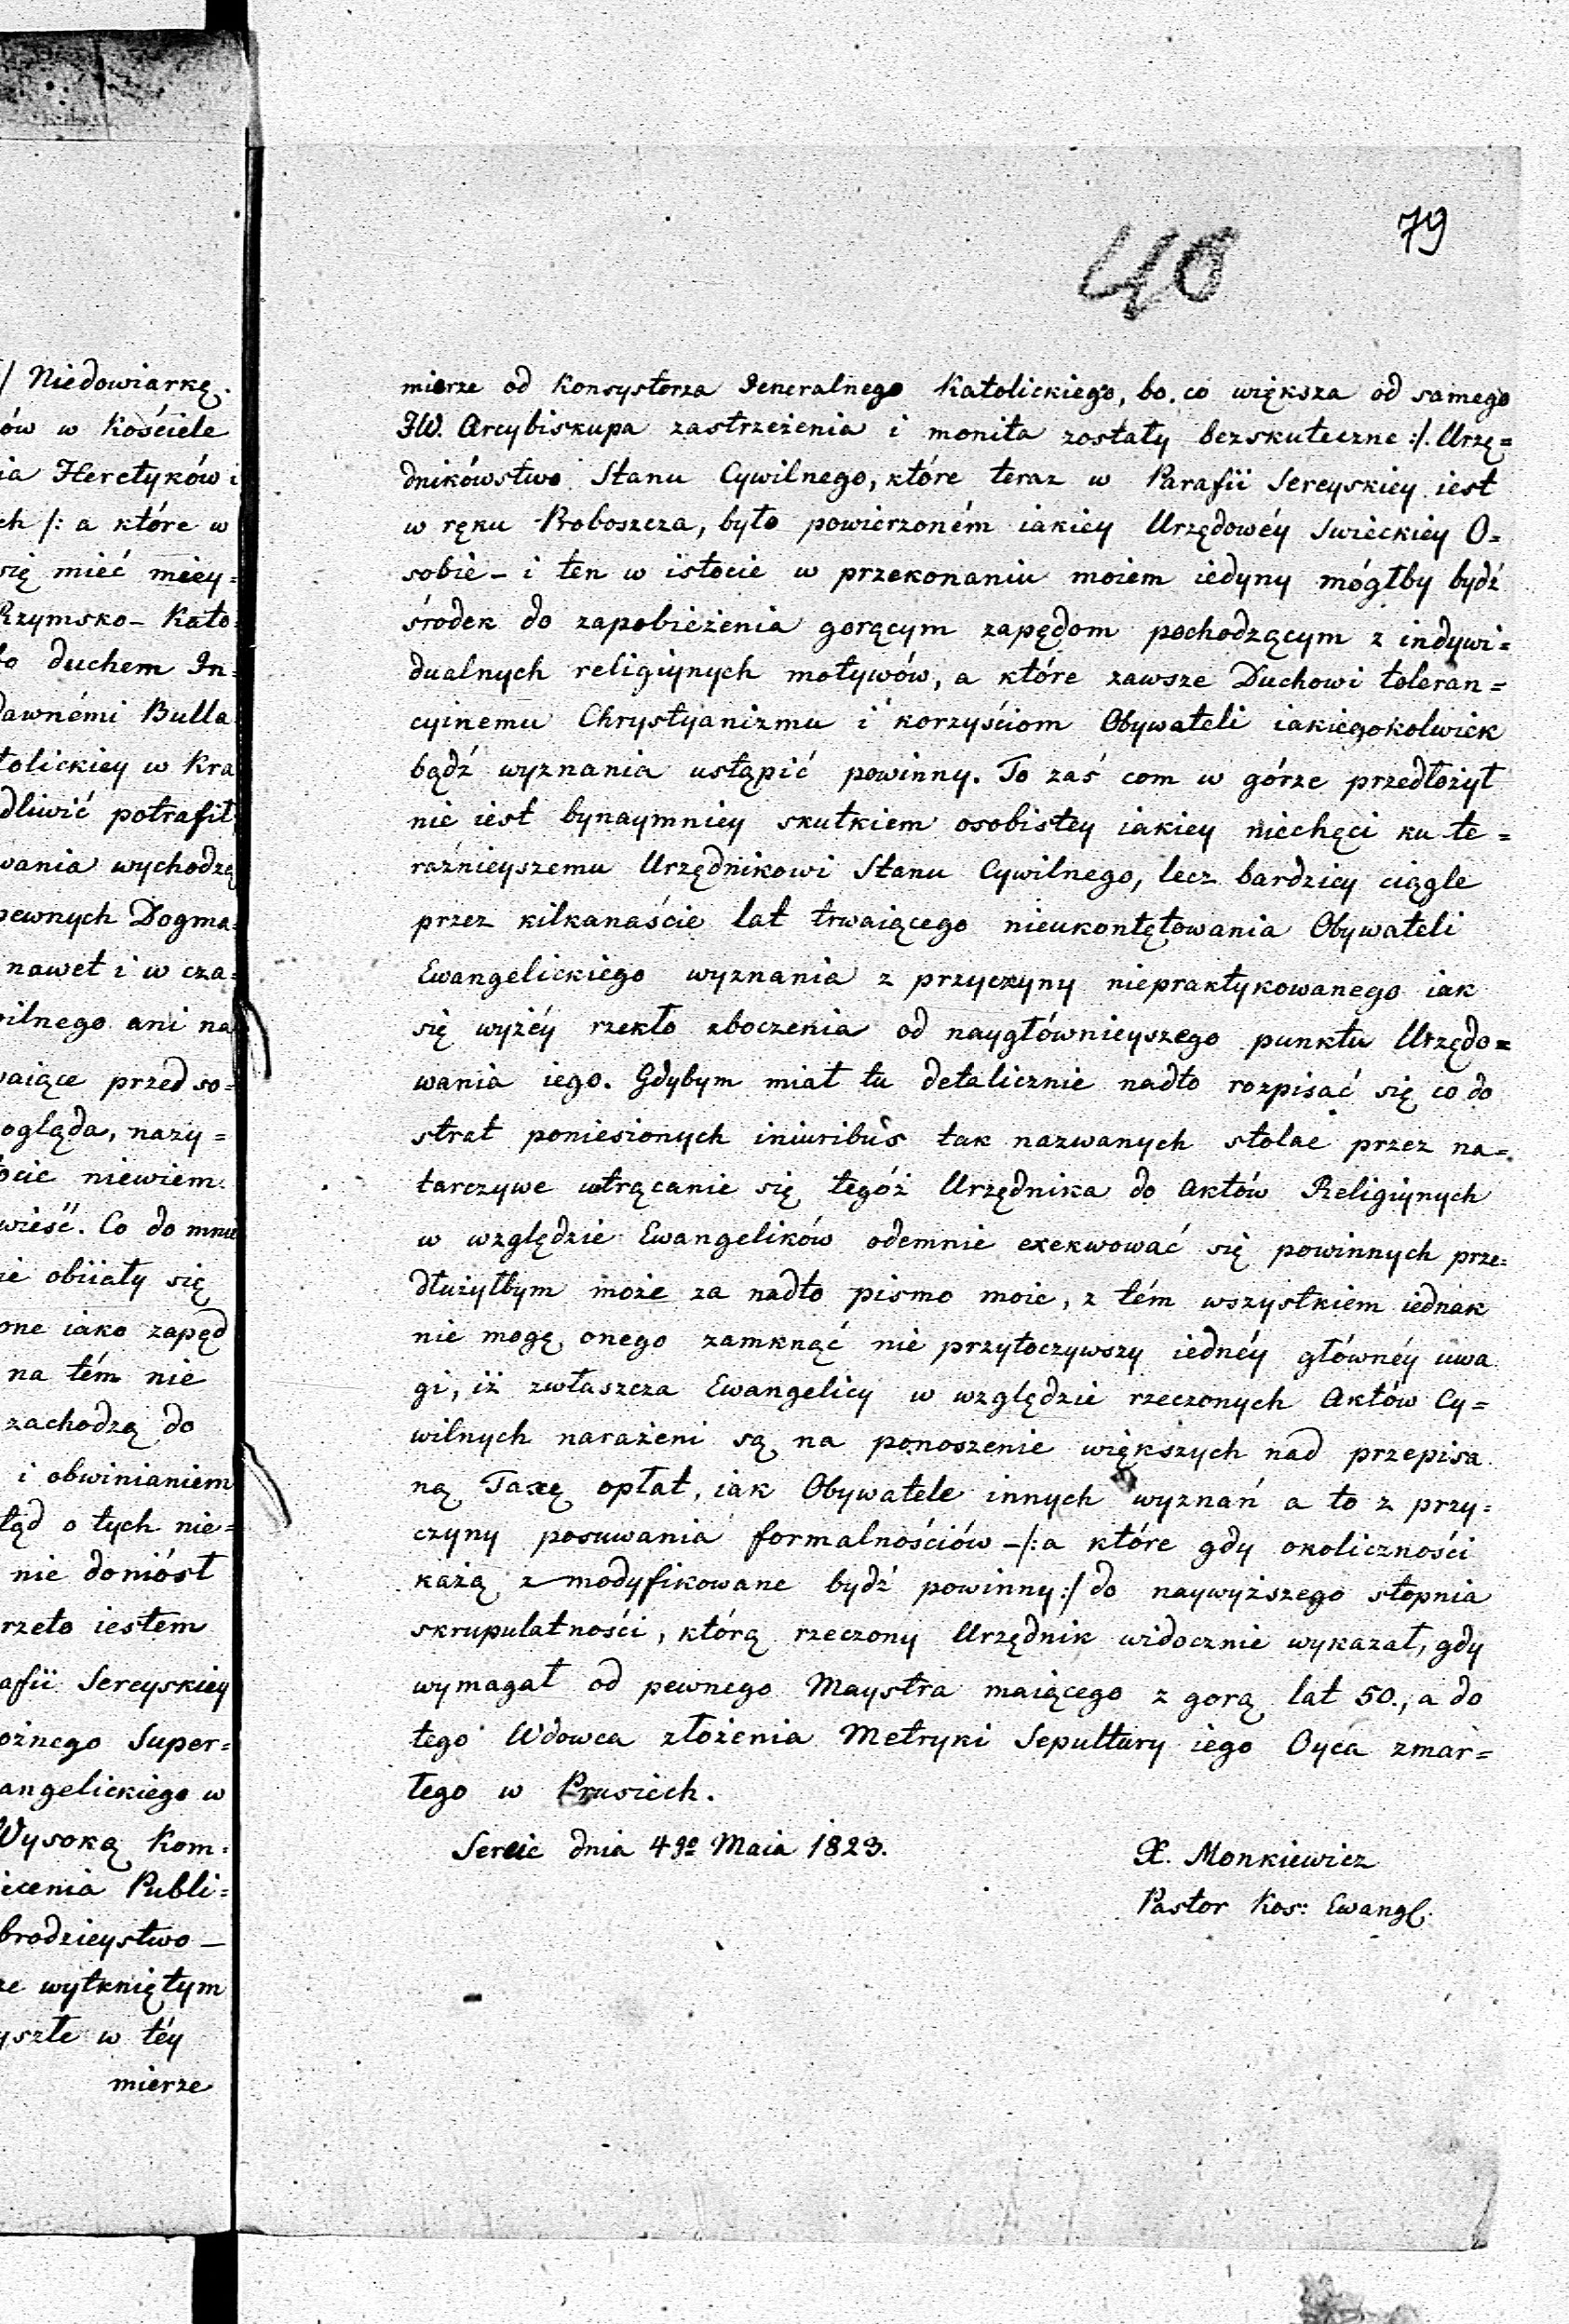 79
40
/ Niedowiarkę.
ów w Kościele
ia Heretyków i
ch /: a które w
się mieć miey=
Rzymsko-Kato=
o duchem In=
dawnémi Bulla
tolickiey w Kra
dliwić potrafił,
wania wychodzą
pewnych Dogma=
nawet i w cza=
ilnego ani na
aiące przed so=
ogląda, nazy=
ocie niewiem.
wieść. Co do mnie
ie obiiały się
one iako zapęd
na tém nie
zachodzą do
i obwinianiem
tąd o tych nie=
nie doniósł
rzeto iestem
afii Sereyskiey
ożnego Super=
angelickiego w
Wysoką Kom=
iecenia Publi=
brodzieystwo—
ze wytkniętym
yszłe w téy
mierze
mierze od Konsystorza Generalnego Katolickiego, bo, co większa od samego
JW. Arcybiskupa zastrzeżenia i monita zostały bezskuteczne :/. Urzę=
dnikówstwo Stanu Cywilnego, które teraz w Parafii Sereyskiey iest
w ręku Proboszcza, było powierzoném iakiey Urzędowéy Swieckiey O=
sobie – i ten w istocie w przekonaniu moiem iedyny mógłby bydź
środek do zapobieżenia gorącym zapędom pochodzącym z indywi=
dualnych religiynych motywów, a które zawsze Duchowi toleran=
cyinemu Chrystyanizmu i korzyściom Obywateli iakiegokolwiek
bądź wyznania ustąpić powinny. To zaś com w górze przedłożył
nie iest bynaymniey skutkiem osobistey iakiey niechęci ku te=
raźnieyszemu Urzędnikowi Stanu Cywilnego, lecz bardziey ciągle
przez kilkanaście lat trwaiącego nieukontętowania Obywateli
Ewangelickiego wyznania z przyczyny niepraktykowanego iak
się wyżéy rzekło zboczenia od naygłównieyszego punktu Urzędo=
wania iego. Gdybym miał tu detalicznie nadto rozpisać się co do
strat poniesionych iniuribus tak nazwanych stolae przez na=
tarczywe wtrącanie się tegóż Urzędnika do Aktów Religiynych
w względzie Ewangelików odemnie exekwować się powinnych prze=
dłużyłbym może za nadto pismo moie, z tém wszystkiem iednak
nie mogę onego zamknąć nie przytoczywszy iednéy głównéy uwa
gi, iż zwłaszcza Ewangelicy w względzie rzeczonych Aktów Cy=
wilnych narażeni są na ponoszenie większych nad przepisa
ną Taxę opłat, iak Obywatele innych wyznań a to z przy=
czyny posuwania formalnościów –/: a które gdy okoliczności
każą zmodyfikowane bydź powinny :/ do naywyższego stopnia
skrupulatności, którą rzeczony Urzędnik widocznie wykazał, gdy
wymagał od pewnego Maystra maiącego z gorą lat 50., a do
tego Wdowca złożenia Metryki Sepultury iego Oyca zmar=
łego w Prusiech.
Sereie dnia 4go Maia 1823.
X. Monkiewicz
Pastor Kos: Ewangl: